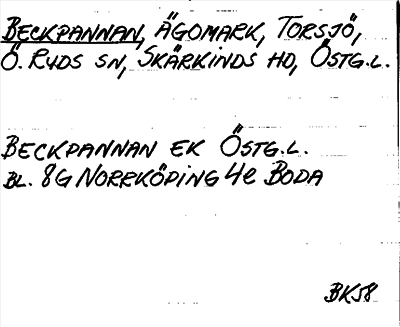 BECKPANNAN, ÄGOMARK, TORSJÖ,
Ö. RYDS SN, SKÄRKINDS HD, ÖSTG.L.
BECKPANNAN EK ÖSTG.L.
BL. 8G NORRKÖPING 4e BODA
BK58